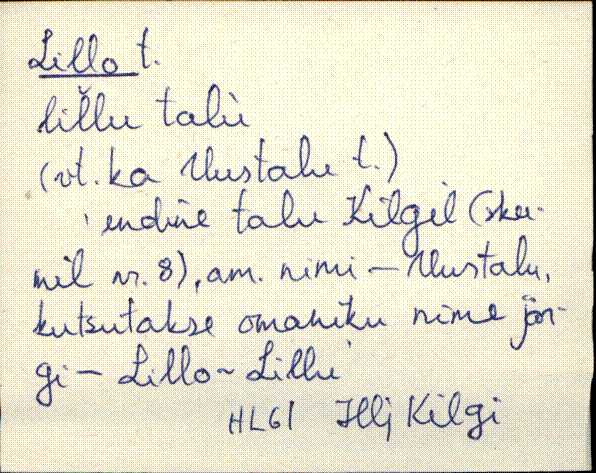 Lillo t.
lil̆lu talù
(vt. ka Uustalu t.)
endine talu Kilgil (skee-
mil nr. 8), am. nimi – Uustalu,
kutsutakse omaniku nime jär-
gi – Lillo ~ Lillu
HLGl Illj Kilgi